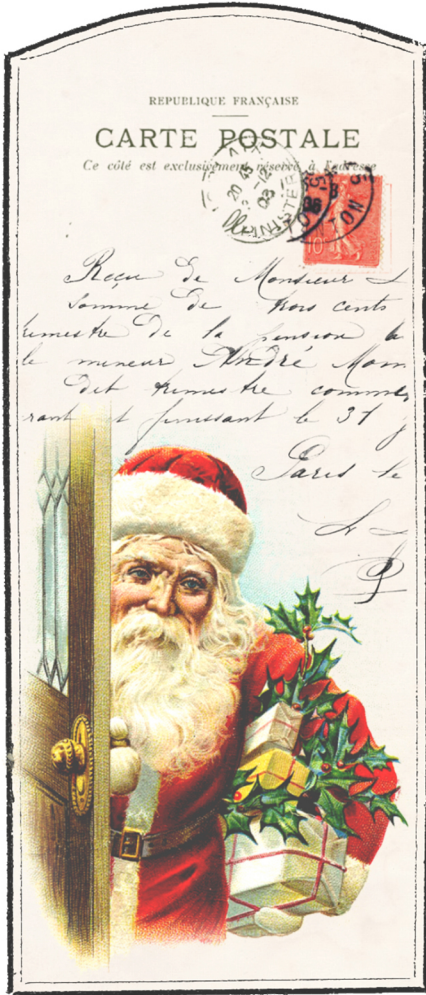 REPUBLIQUE FRANÇAISE
CARTE POSTALE
Ce côté est exclusivement réservé à l'adresse
20 45
2 -12
03
10
Reçu de Monsieur
somme de trois cents
trimestre de la pension
le mineur André
dit trimestre
rant et finissant le 31
Paris le